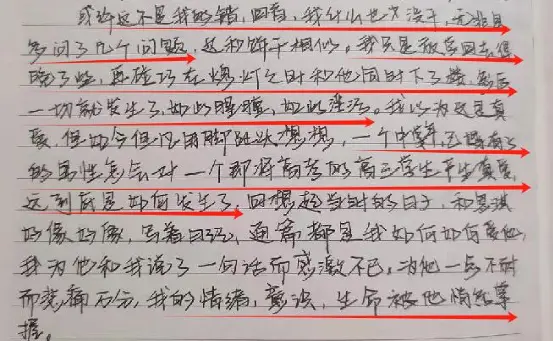 或许这不是我的错，回看，我什么也没干，无非且
多问了几个问题，这和饼干相似。我只是放学回去得
晚了些，再碰巧在熄灯之时和他同时下了楼，然后
一切就发生了，如此朦胧，如此混沌。我以为这是真
爱，但如今但凡用脚趾头想想，一个中年，已婚有子
的男性怎会对一个即将高考的高三学生产生真爱，
这到底是如何发生了，回想起当时的日子，和思琪
好像好像，写着日记，通篇都是我如何如何爱他，
我为他和我说了一句话而感激不已，为他一点不耐
而悲痛万分，我的情绪，意识，生命被他情绪掌
握。